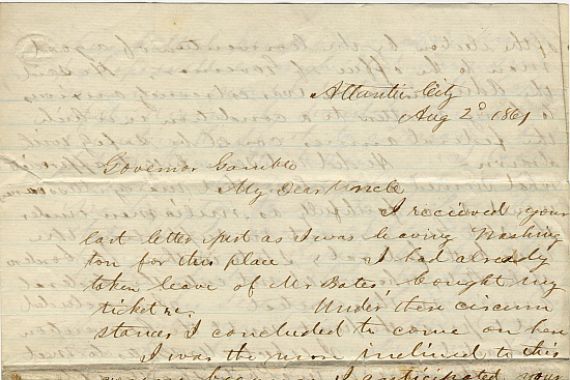 Atlantic City
Aug 2d 1861
Governor Gamble
My Dear Uncle
I recieved your
last letter just as I was leaving Washing
ton for this place & I had already
taken leave of Mr Bates, bought my
ticket &c. Under these circum
stances I concluded to come on here
I was the more inclined to this
I anticipated your